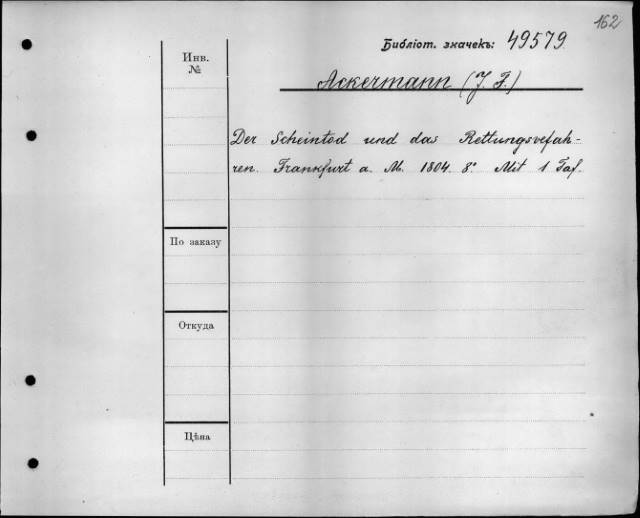 162
Библіот. значекъ: 49579
Инв.
№
Ackermann (J. F.)
Der Scheintod und das Rettungsvefah-
ren. Frankfurt a. M. 1804. 8°. Mit 1 Taf.
По заказу
Откуда
Цѣна